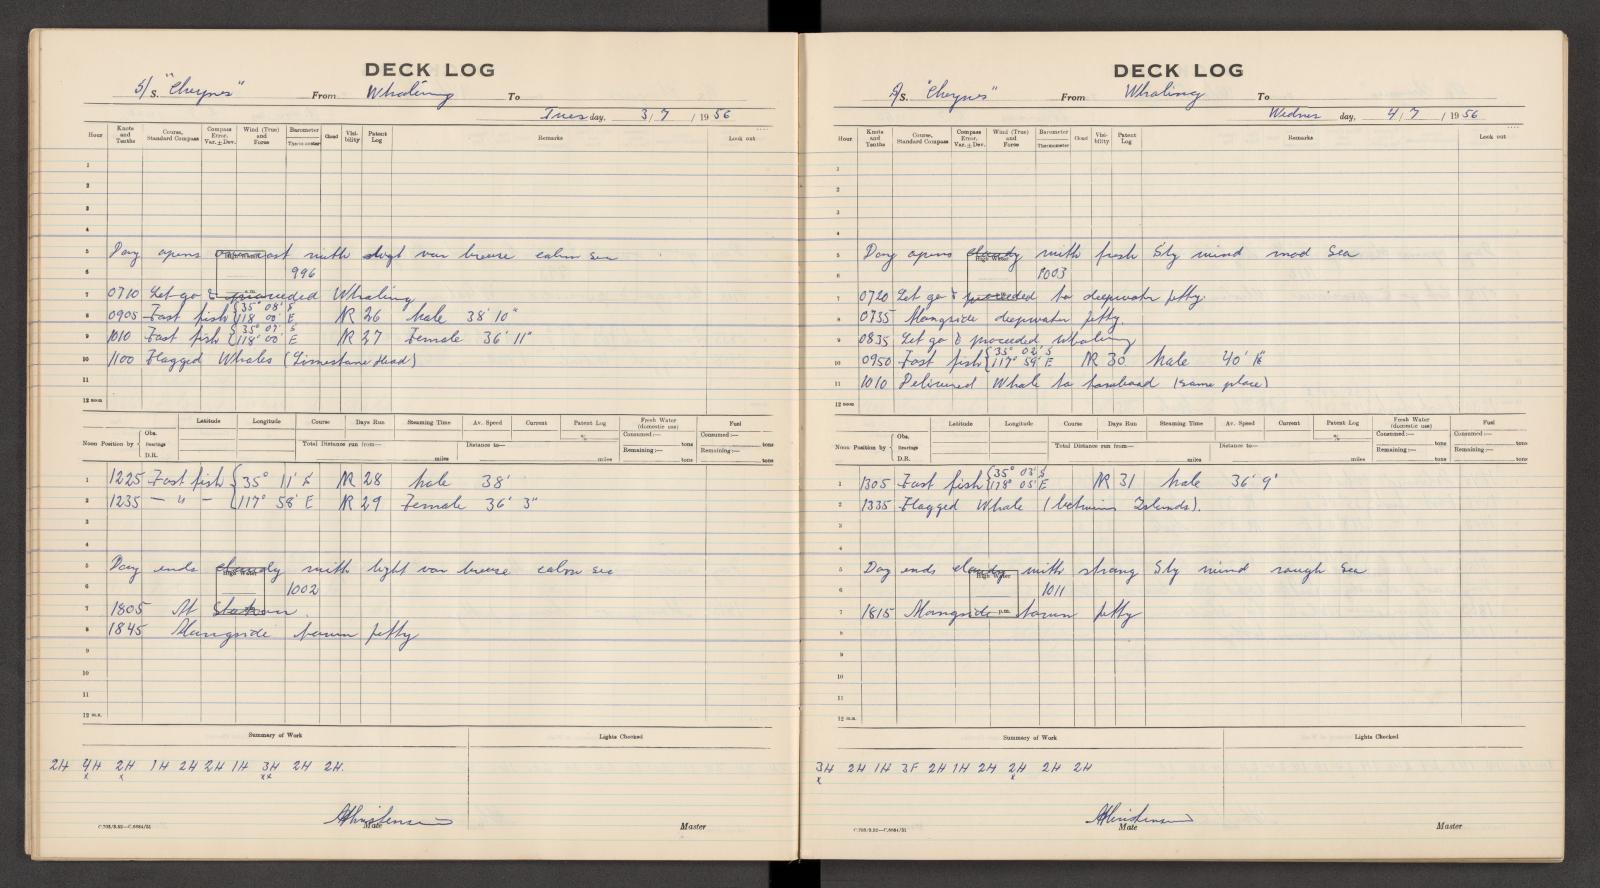 DECK LOG
S/S. "Cheynes" From Whaling To
Tues day, 3/7/1956
Hour Knots and Tenths Course, Standard Compass Compass Error, Var. ± Dev. Wind (True) and Force Barometer Thermometer Cloud Visibility Patent Log Remarks Look out
1
2
3
4
5 Day opens overcast with slight var breeze calm sea
6 996
7 0710 Let go & proceeded Whaling
8 0905 Fast fish {35° 08' S 118° 00' E NR 26 Male 38' 10"
9 1010 Fast fish {35° 07' S 118° 00' E NR 27 Female 36' 11"
10 1100 Flagged Whales (Limestone Head)
11
12 noon
Latitude Longitude Course Days Run Steaming Time Av. Speed Current Patent Log Fresh Water (domestic use) Fuel
Noon Position by { Obs. Bearings D.R. Total Distance run from— miles Distance to— miles % Consumed:— tons Remaining:— tons Consumed:— tons Remaining:— tons
1 1225 Fast fish {35° 11' S NR 28 Male 38'
2 1235 — " — {117° 58' E NR 29 Female 36' 3"
3
4
5 Day ends cloudy with light var breeze calm sea
High Water
6 1002
7 1805 At Station.
8 1845 Alongside town jetty
9
10
11
12 m.n.
Summary of Work Lights Checked
2H 4H 2H 1H 2H 2H 1H 3H 2H 2H.
x x xx
AChristensen
C.703/3.52—C.8684/51 Mate Master
DECK LOG
S/S. "Cheynes" From Whaling To
Wednes day, 4/7/1956
Hour Knots and Tenths Course, Standard Compass Compass Error, Var. ± Dev. Wind (True) and Force Barometer Thermometer Cloud Visibility Patent Log Remarks Look out
1
2
3
4
5 Day opens cloudy with fresh Sly wind mod Sea
High Water
6 1003
7 0720 Let go & proceeded to deepwater jetty.
8 0735 Alongside deepwater jetty.
9 0835 Let go & proceeded whaling
10 0950 Fast fish {35° 02' S 117° 59' E NR 30 Male 40'
11 1010 Delivered Whale to towboad (same place)
12 noon
Latitude Longitude Course Days Run Steaming Time Av. Speed Current Patent Log Fresh Water (domestic use) Fuel
Noon Position by { Obs. Bearings D.R. Total Distance run from— miles Distance to— miles % Consumed:— tons Remaining:— tons Consumed:— tons Remaining:— tons
1 1305 Fast fish {35° 03' S 118° 05' E NR 31 Male 36' 9"
2 1335 Flagged Whale (between Islands).
3
4
5 Day ends cloudy with strong Sly wind rough Sea
High Water
6 1011
7 1815 Alongside town jetty
p.m.
8
9
10
11
12 m.n.
Summary of Work Lights Checked
3H 2H 1H 3F 2H 1H 2H 2H 2H 2H
x x
AChristensen
C.703/3.52—C.8684/51 Mate Master